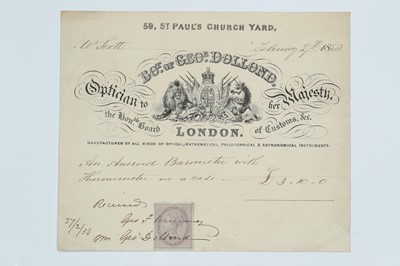 59, ST PAUL'S CHURCH YARD,
Mr Scott
February 27th 18
BOT. OF GEOE. DOLLOND,
Optician to
her Majesty,
the Honble Board
of Customs, &c.
LONDON.
MANUFACTURER OF ALL KINDS OF OPTICAL, MATHEMATICAL, PHILOSOPHICAL & ASTRONOMICAL INSTRUMENTS.
An Aneroid Barometer with
Thermometer in a case - £ 3-10-0
Received
Geo
27/2/58
Geo Dollond